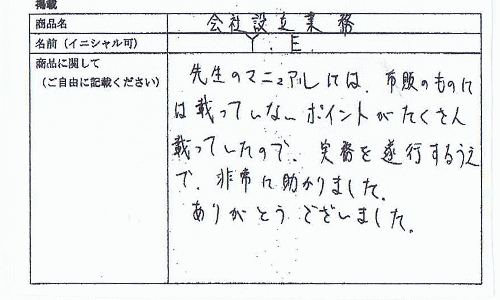 掲載
商品名 会社設立業務
名前(イニシャル可) Y.E
商品に関して
(ご自由に記載ください)
先生のマニュアルには、市販のものに
は載っていないポイントがたくさん
載っていたので、実務を遂行するうえ
で、非常に助かりました。
ありがとうございました。